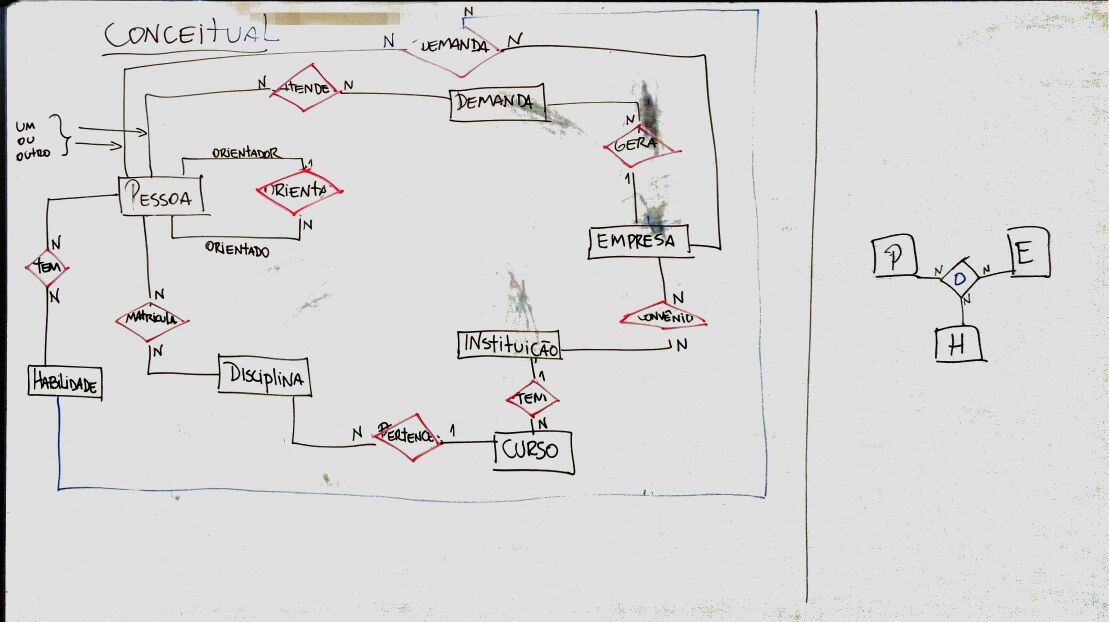 CONCEITUAL
N
N
DEMANDA
N
N
ATENDE
N
DEMANDA
N
GERA
1
UM
OU
OUTRO
ORIENTADOR
1
ORIENTA
N
ORIENTADO
PESSOA
EMPRESA
N
TEM
N
N
MATRICULA
N
N
CONVÊNIO
N
INSTITUIÇÃO
1
TEM
N
HABILIDADE
DISCIPLINA
N
PERTENCE
1
CURSO
P
N
D
N
E
N
H